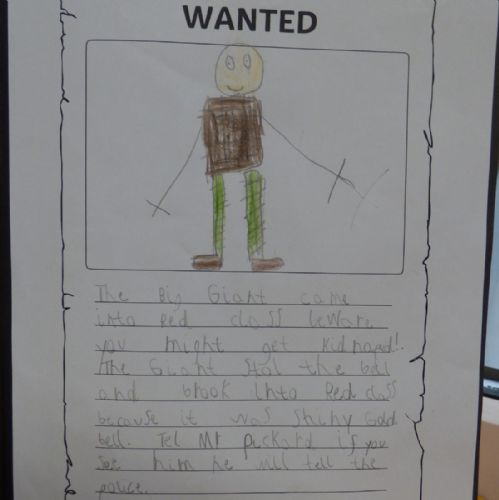 WANTED
The Big Giant came
into Red class beware
you might get kidnaped!.
The Giant stol the bell
and brook into Red class
because it was shiny Gold
bell. Tel Mr Peckard if you
see him he will tell the
police.